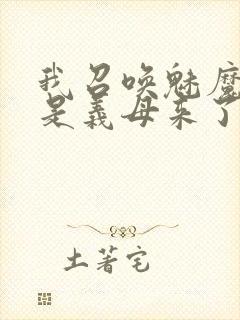 我召唤魅魔
是义母来了
土著宅